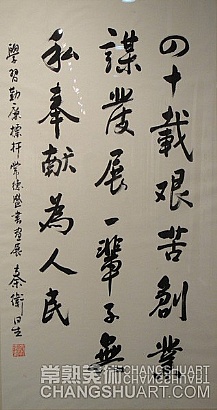 四十載艰苦創業
謀發展一輩子無
私奉献為人民
學習勤廉標杆常德盛書画展 秦衛
常熟美術 常熟美術
CHANGSHUART CHANGSHUART